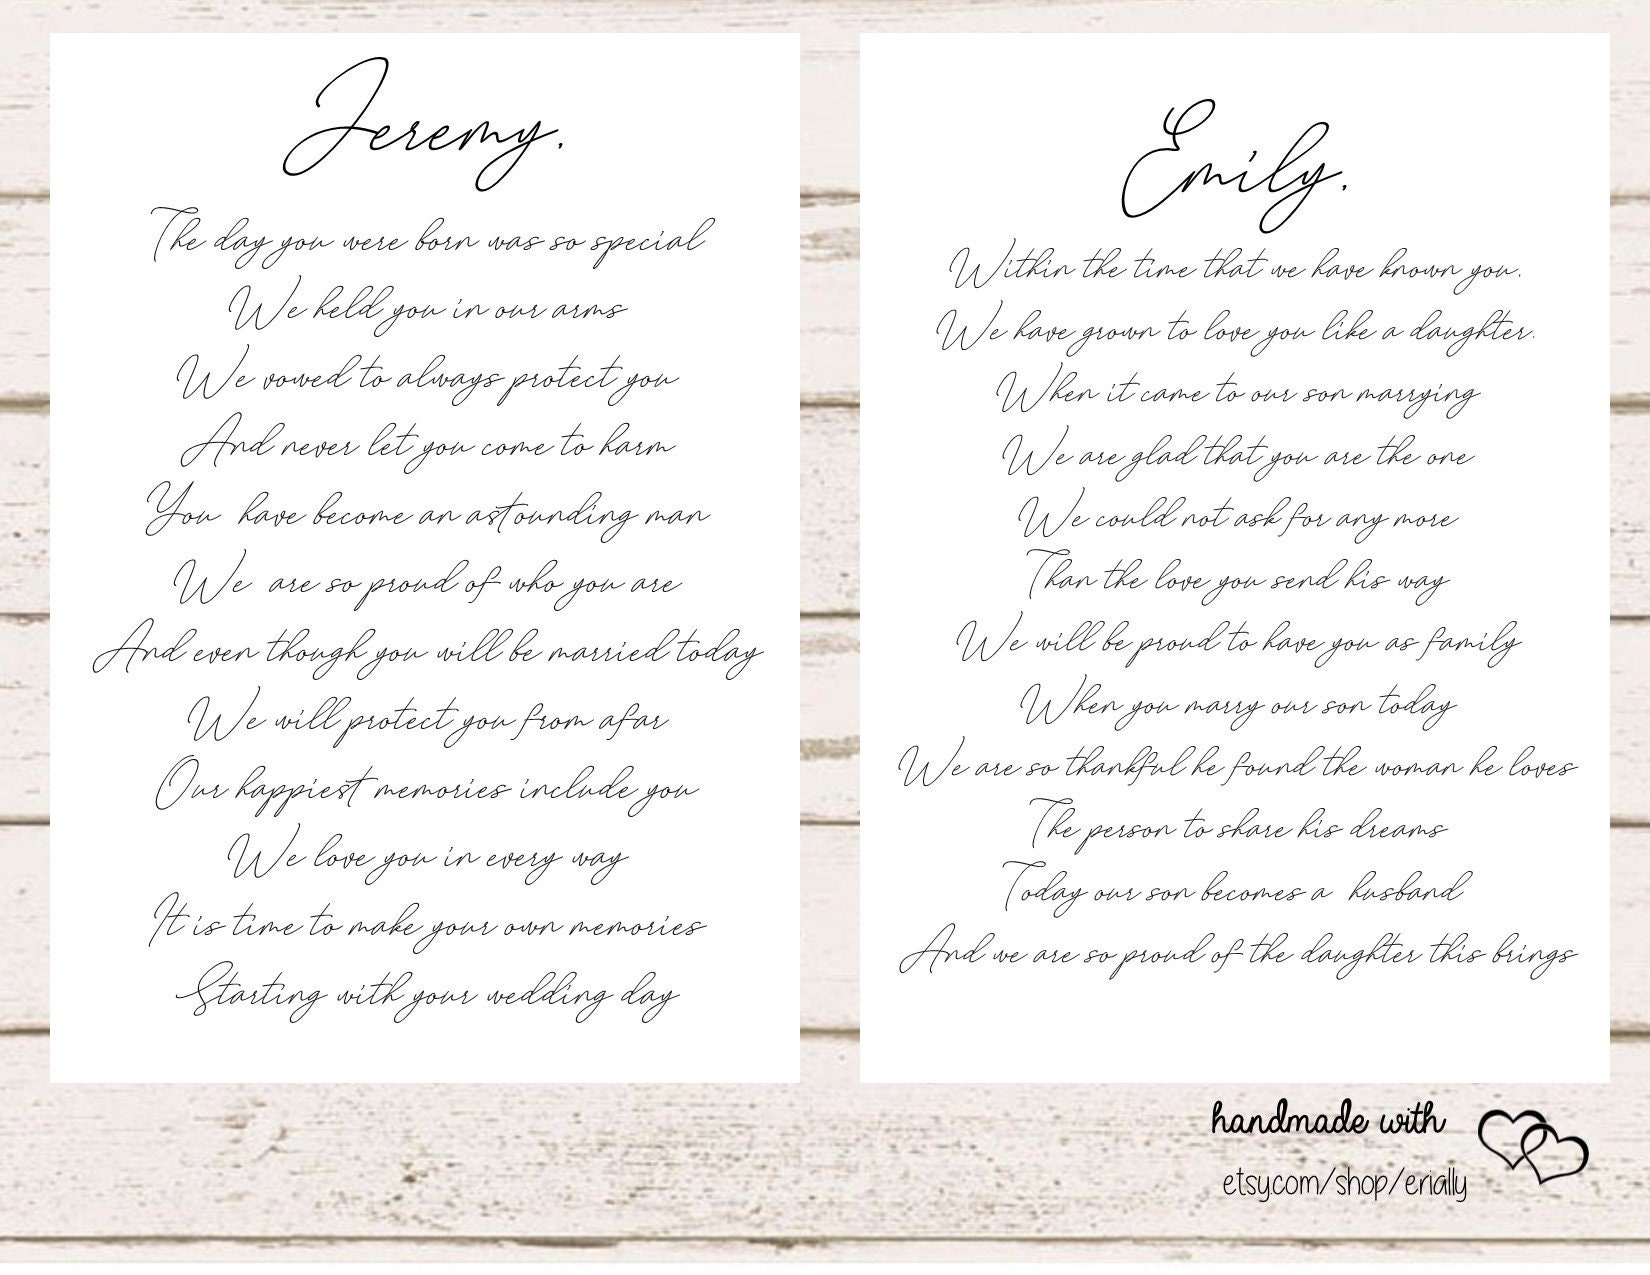 Jeremy.
The day you were born was so special
We held you in our arms
We vowed to always protect you
And never let you come to harm
You have become an astounding man
We are so proud of who you are
And even though you will be married today
We will protect you from afar
Our happiest memories include you
We love you in every way
It is time to make your own memories
Starting with your wedding day
Emily.
Within the time that we have known you.
We have grown to love you like a daughter.
When it came to our son marrying
We are glad that you are the one
We could not ask for any more
Than the love you send his way
We will be proud to have you as family
When you marry our son today
We are so thankful he found the woman he loves
The person to share his dreams
Today our son becomes a husband
And we are so proud of the daughter this brings
handmade with
etsy.com/shop/erially